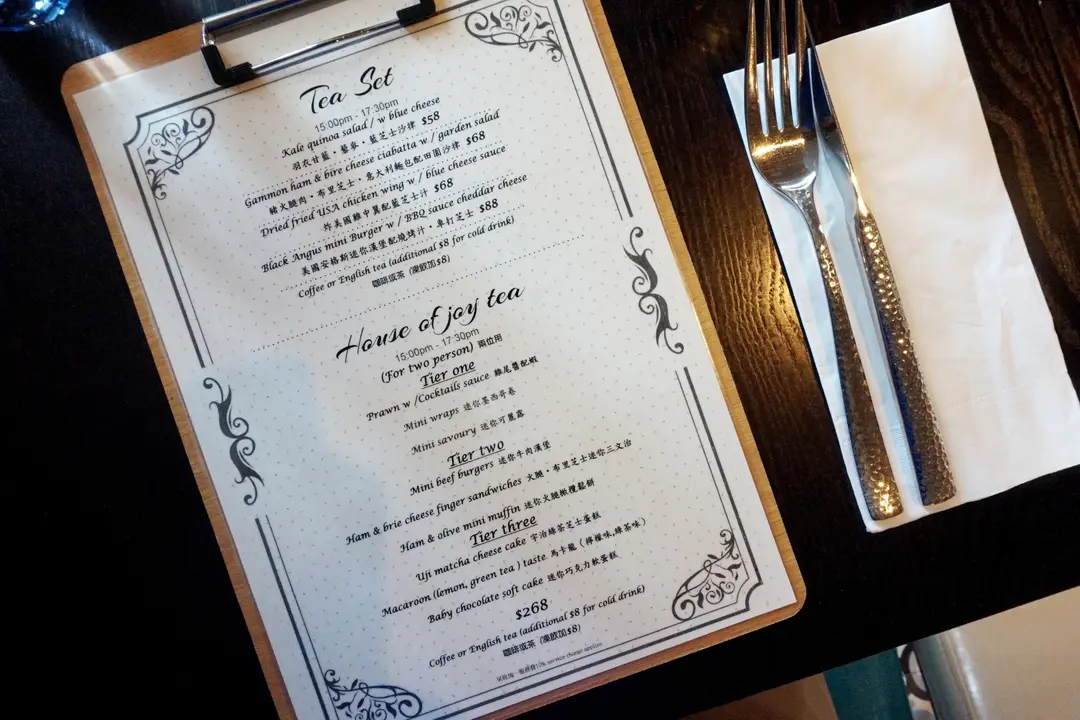 Tea Set
15:00pm - 17:30pm
Kale quinoa salad / w blue cheese
羽衣甘藍·藜麥·藍芝士沙律 $58
Gammon ham & bire cheese ciabatta w / garden salad
豬火腿肉·布里芝士·意大利麵包配田園沙律 $68
Dried fried USA chicken wing w / blue cheese sauce
炸美國雞中翼配藍芝士汁 $68
Black Angus mini Burger w / BBQ sauce cheddar cheese
美國安格斯迷你漢堡配燒烤汁·車打芝士 $88
Coffee or English tea (additional $8 for cold drink)
咖啡或茶 (凍飲加$8)
House of joy tea
15:00pm - 17:30pm
(For two person) 兩位用
Tier one
Prawn w /Cocktails sauce 雞尾醬配蝦
Mini wraps 迷你墨西哥卷
Mini savoury 迷你可麗露
Tier two
Mini beef burgers 迷你牛肉漢堡
Ham & brie cheese finger sandwiches 火腿·布里芝士迷你三文治
Ham & olive mini muffin 迷你火腿橄欖鬆餅
Tier three
Uji matcha cheese cake 宇治綠茶芝士蛋糕
Macaroon (lemon, green tea ) taste 馬卡龍 ( 檸檬味,綠茶味)
Baby chocolate soft cake 迷你巧克力軟蛋糕
$268
Coffee or English tea (additional $8 for cold drink)
咖啡或茶 (凍飲加$8)
10% service charge applies